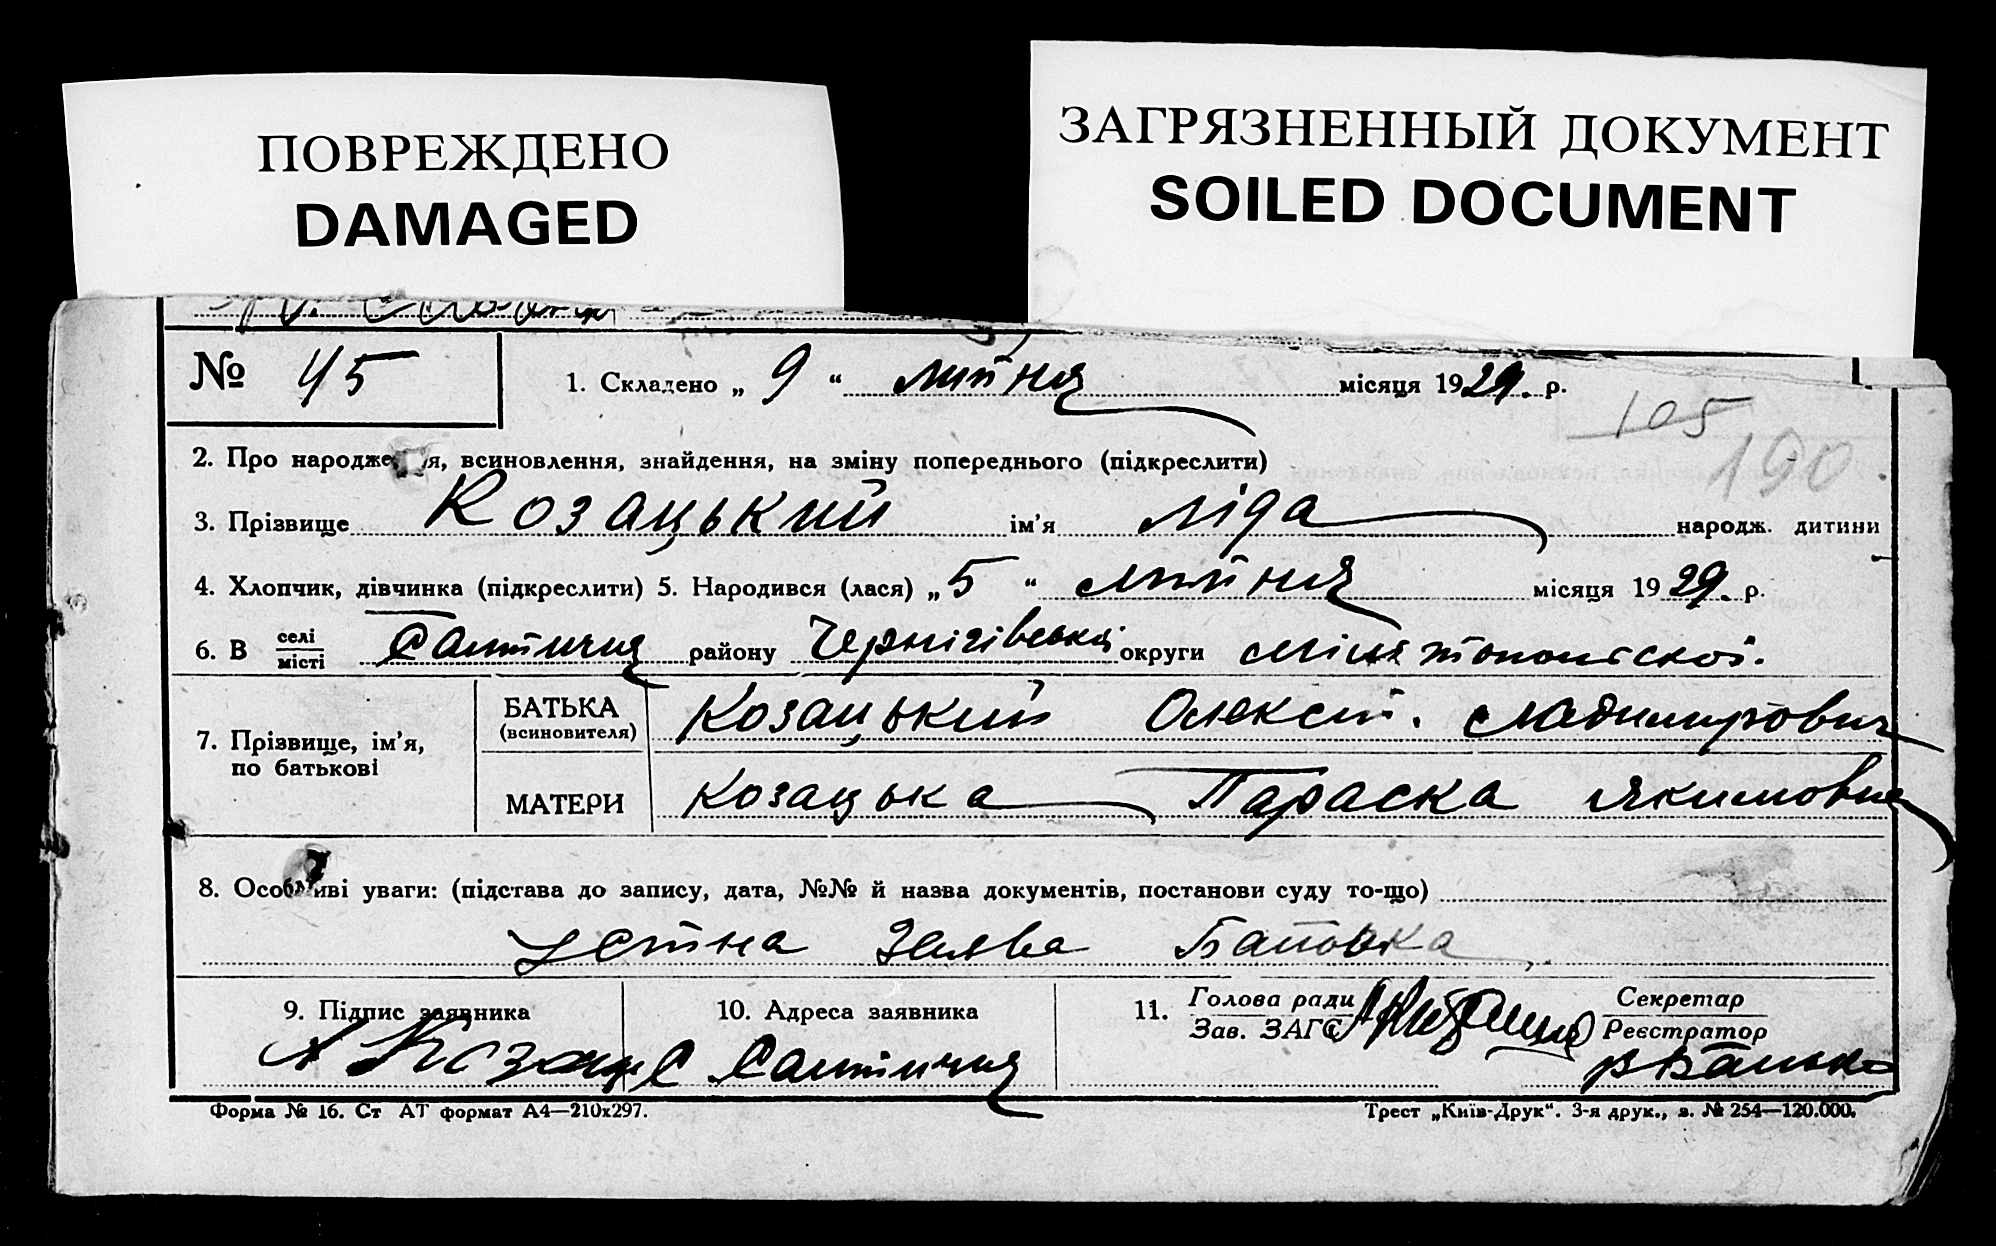 ПОВРЕЖДЕНО
DAMAGED
ЗАГРЯЗНЕННЫЙ ДОКУМЕНТ
SOILED DOCUMENT
№ 45
1. Складено „ 9 “ липня місяця 1929. р.
105
190.
2. Про народже я, всиновлення, знайдення, на зміну попереднього (підкреслити)
3. Прізвище Козацький ім’я Ліда народж. дитини
4. Хлопчик, дівчинка (підкреслити) 5. Народився (лася) „ 5 “ липня місяця 1929. р.
6. В селі місті Салтичия району Чернігівські округи
7. Прізвище, ім’я, по батькові
БАТЬКА (всиновителя) Козацький Олексій.
МАТЕРИ Козацька Параска Якимовна
8. Особ иві уваги: (підстава до запису, дата, №№ й назва документів, постанови суду то-що)
Устна Заява Батовка
9. Підпис заявника
10. Адреса заявника
11. Голова ради Зав. ЗАГС
Секретар Реєстратор
Козац Салтичия
Форма № 16. Ст АТ формат А4—210х297.
Трест „Київ-Друк“. 3-я друк., з. № 254—120.000.